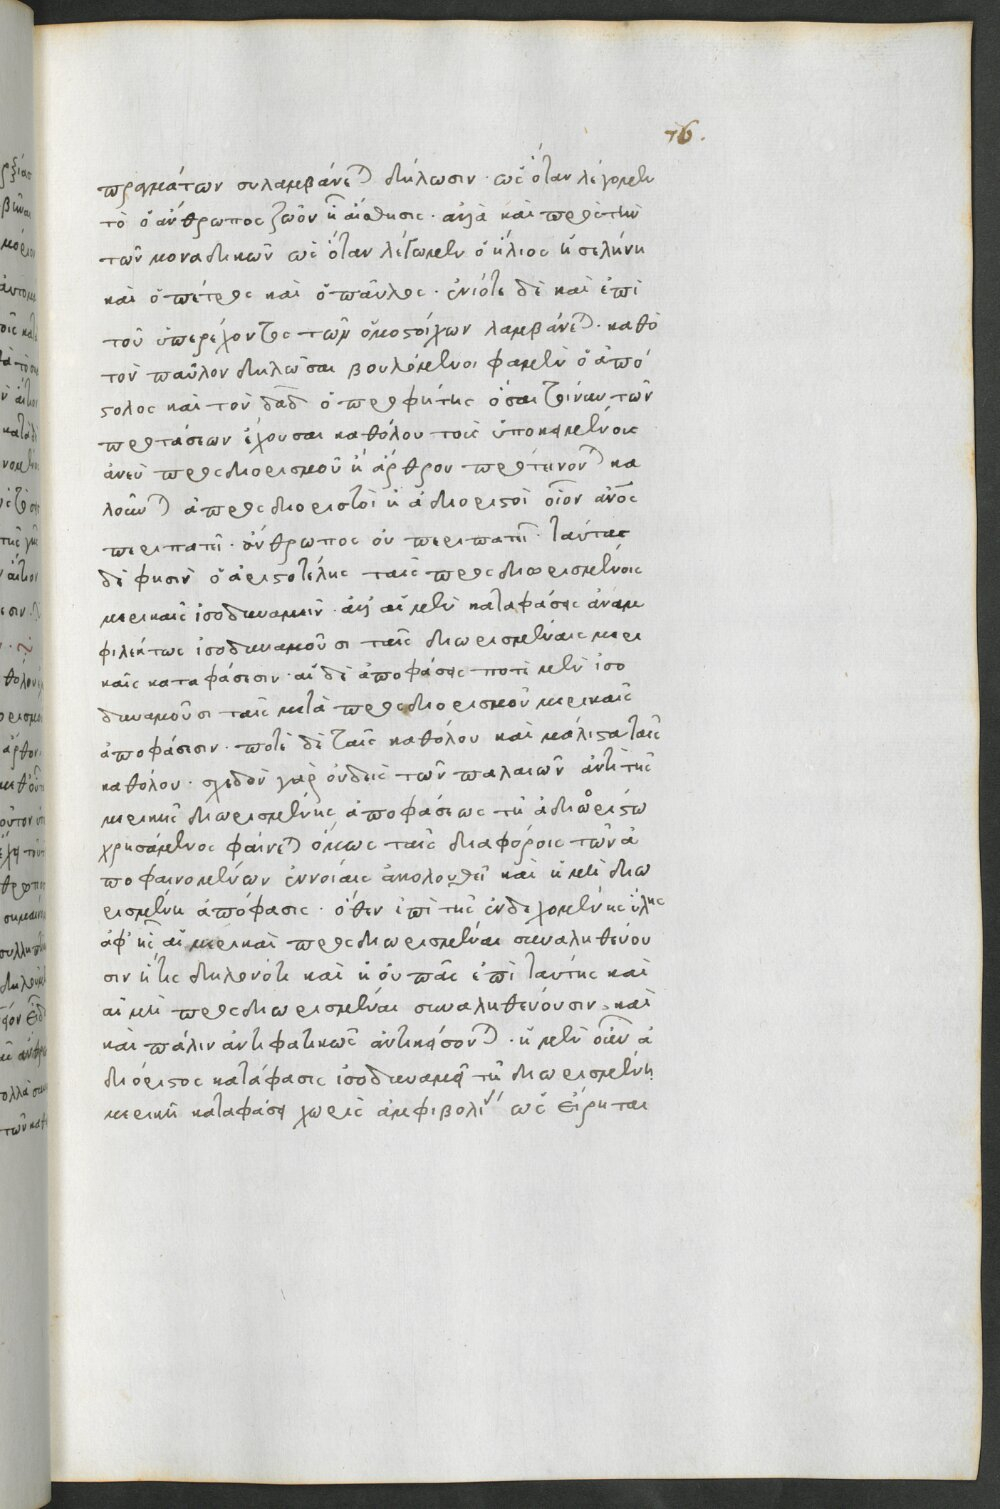 76.
πραγμάτων συλαμβάνε) δήλωσιν· ὡς ὅταν λέγομεν
τὸ ὁ ἄνθρωπος ζῶον ἢ αἴσθησις· ἀλλὰ καὶ πρὸς τὴν
τῶν μοναδικῶν ὡς ὅταν λέγωμεν ὁ ἥλιος ἡ σελήνη
καὶ ὁ πέτρος καὶ ὁ παῦλος· ἐνίοτε δὲ καὶ ἐπὶ
τοῦ ὑπερέχοντος τῶν ὁμοστοίχων λαμβάνε)· καθὸ
τὸν παῦλον δηλῶσαι βουλόμενοι φαμὲν ὁ ἀπό
στολος καὶ τὸν δᾱδ ὁ προφήτης ὅσαι τοίνυν τῶν
προτάσεων ἔχουσαι καθόλου τοῖς ὑποκειμένοις
ἄνευ προσδιορισμοῦ ἢ ἄρθρον προτείνον) κα
λοῦν) ἀπροσδιοριστοὶ ἢ ἀδιοριστοὶ οἷον ἄν̅ος
περιπατεῖ· ἄνθρωπος οὐ περιπατεῖ· ταύτας
δέ φησιν ὁ ἀριστοτέλης ταῖς προσδιωρισμένοις
μερικαῖς ἰσοδυναμεῖν· ἀλλ' αἱ μὲν καταφάσεις ἀναμ
φιλέκτως ἰσοδυναμοῦσι ταῖς διωρισμέναις μερι
καῖς καταφάσεσιν· αἱ δὲ ἀποφάσεις ποτὲ μὲν ἰσο
δυναμοῦσι ταῖς μετὰ προσδιορισμοῦ μερικαῖς
ἀποφάσεσιν· ποτὲ δὲ ταῖς καθόλου καὶ μάλιστα ταῖς
καθόλου· σχεδὸν γὰρ οὐδεὶς τῶν παλαιῶν ἀντὶ τῆς
μερικῆς διωρισμένης ἀποφάσεως τῇ ἀδιορίστω
χρησάμενος φαίνε) ὅμως ταῖς διαφόροις τῶν ἀ
ποφαινομένων ἐννοίαις ἀκολουθεῖ καὶ ἡ μὴ διω
ρισμένη ἀπόφασις· ὅθεν ἐπὶ τῆς ἐνδεχομένης ὕλης
ἀφ' ἧς αἱ μερικαὶ προσδιωρισμέναι συναληθεύου
σιν ἥτις δηλονότι καὶ ἡ οὐ πᾶς ἐπὶ ταύτης καὶ
αἱ μὴ προσδιωρισμέναι συναληθεύουσιν· καὶ
καὶ πάλιν ἀντιφατικῶς ἀντικείσον)· ἡ μὲν οὖν ἀ
διόριστος κατάφασις ἰσοδυναμεῖ τῇ διωρισμένῃ
μερικῇ καταφάσει χωρὶς ἀμφιβολί ὡς εἴρηται